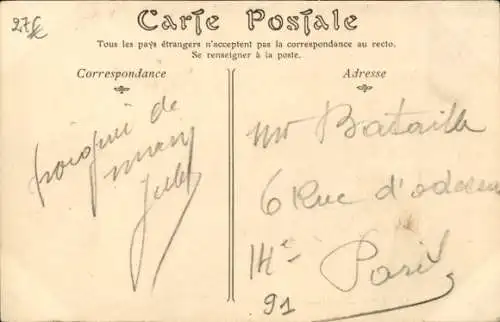 27€
Carte Postale
Tous les pays étrangers n'acceptent pas la correspondance au recto.
Se renseigner à la poste.
Correspondance
Adresse
poignée de
main
Jules
Mr Bataille
6 Rue d'odessa
14e Paris
91